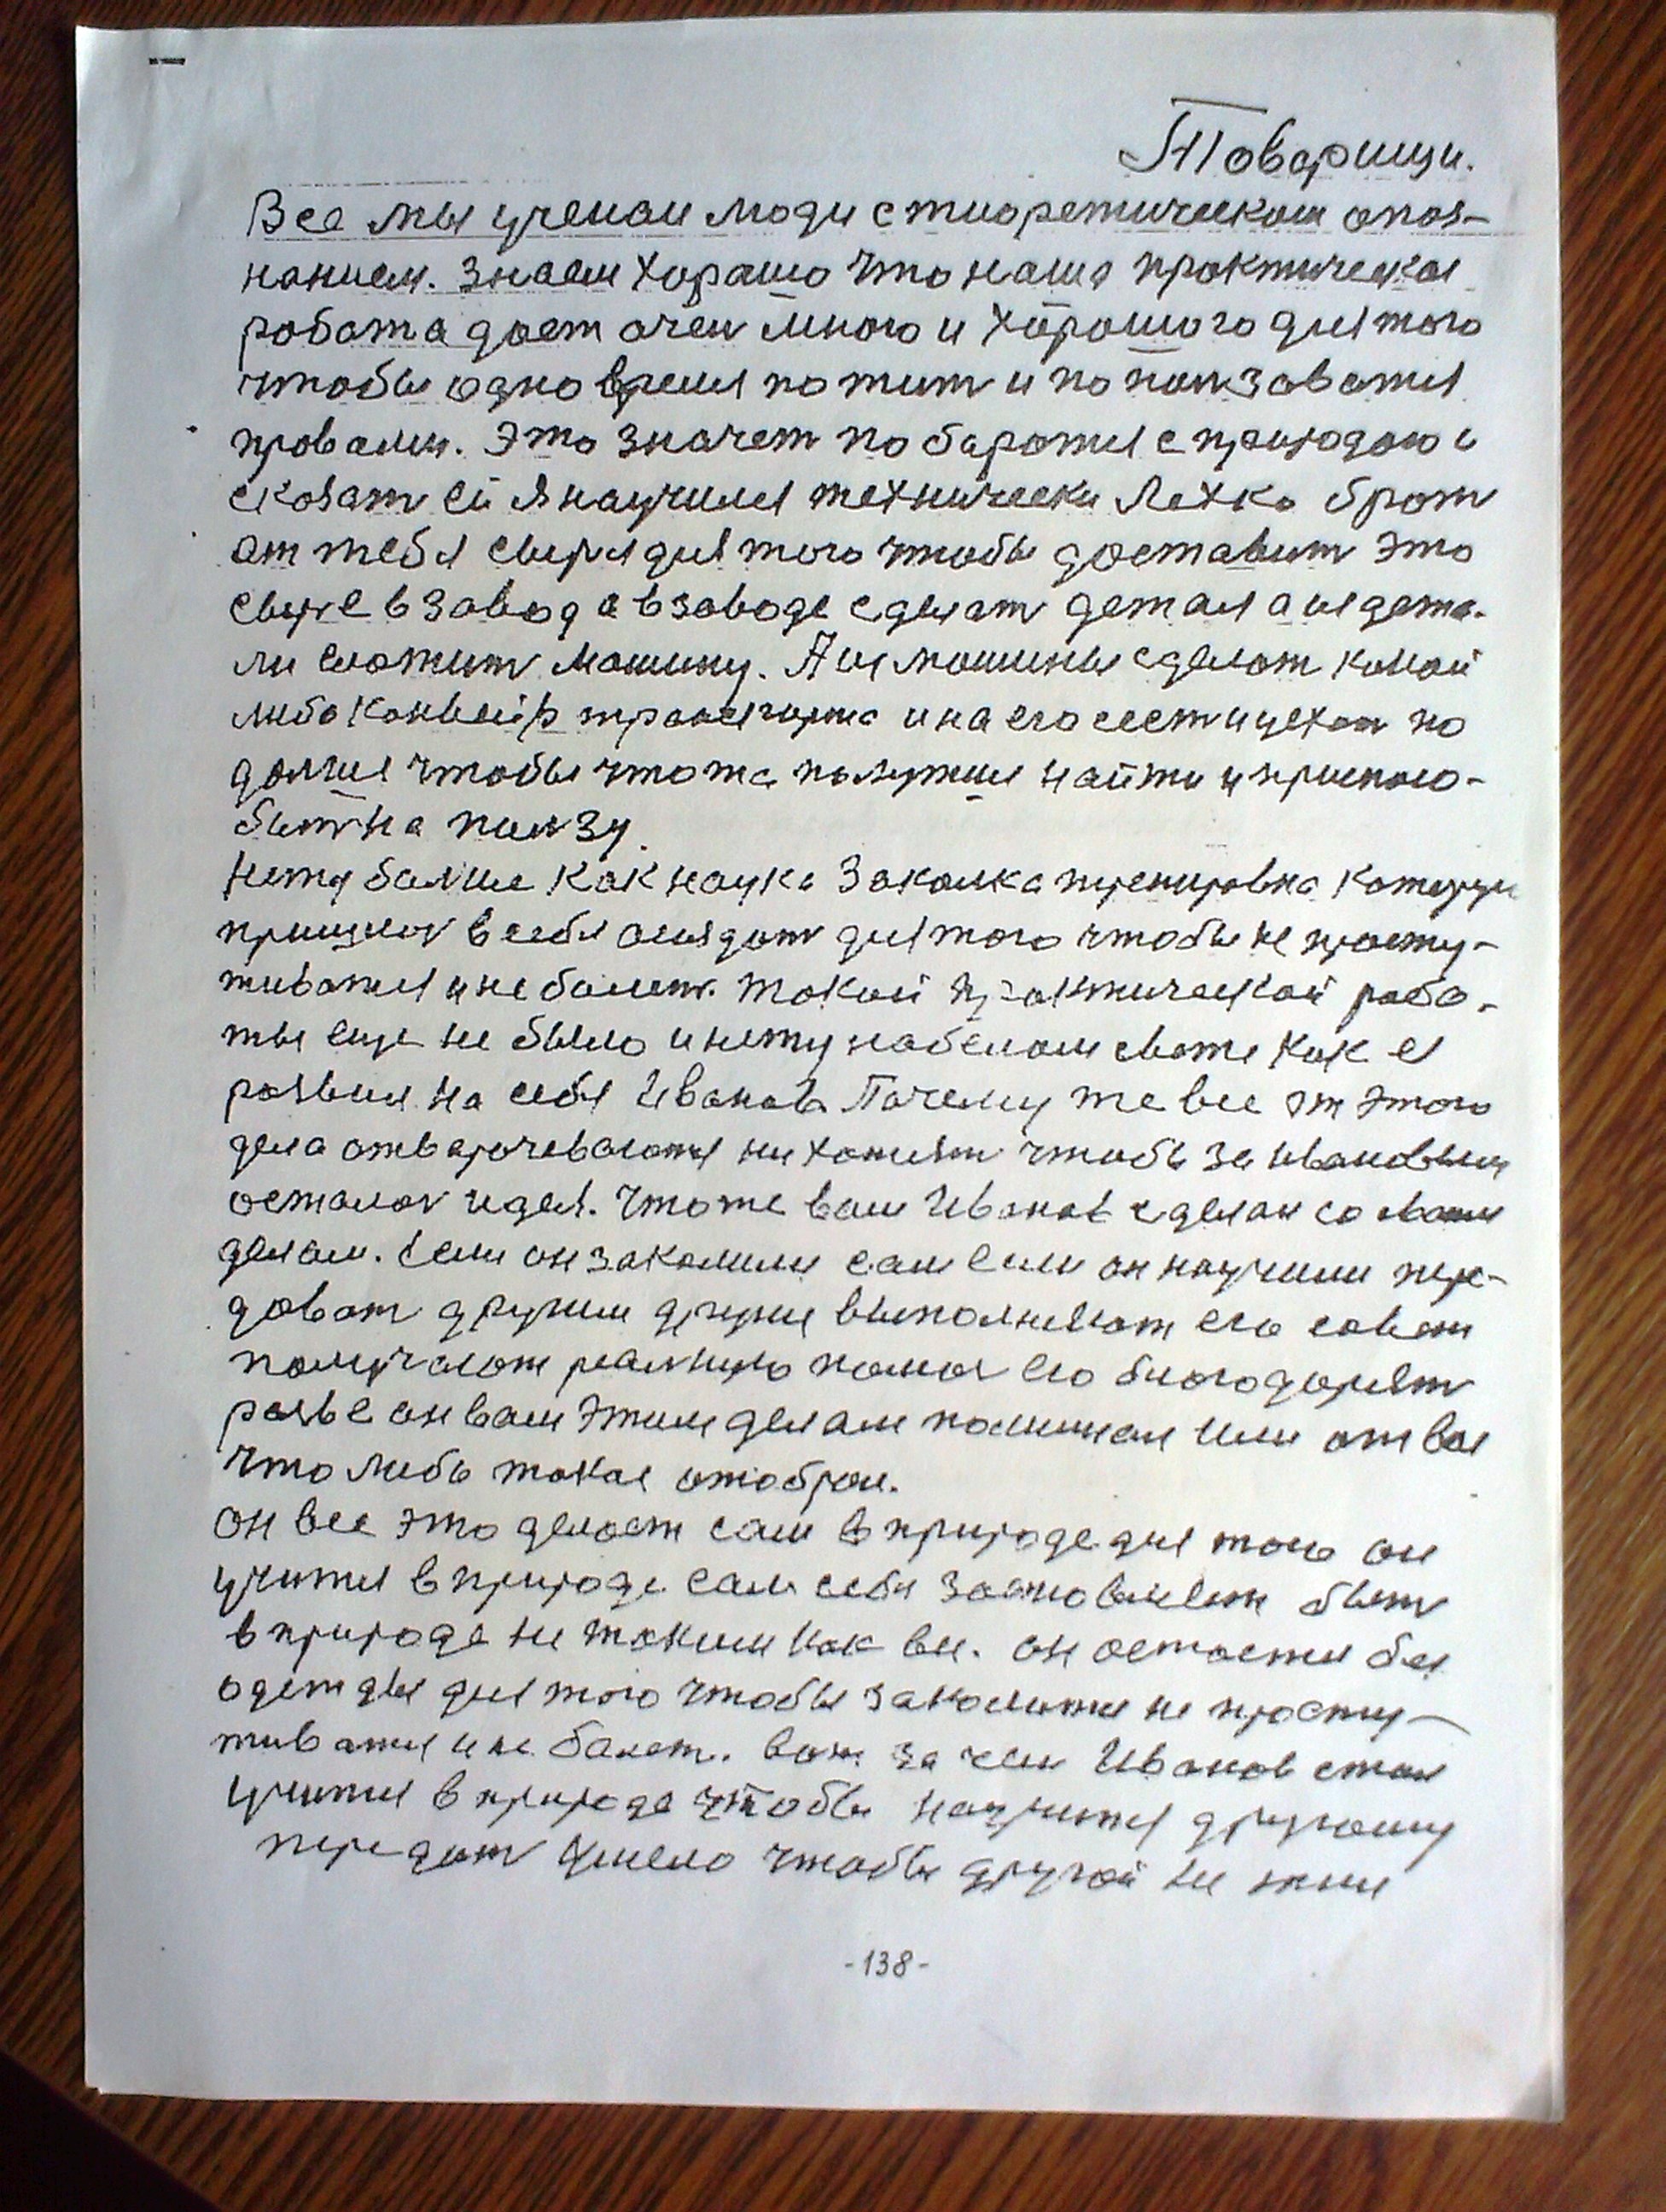 Товарищи.
Все мы ученаи люди с тиоретическом опоз-
нанием. Знаем хорашо что наша практическая
работа дает очен много и хорошого для того
чтобы одно время пожит и попользоватися
правами. Это значет побаротися с природаю и
сказат ей я научился технически легко брат
от тебя сыря для того чтобы доставит это
сыре в завод а в заводе сделат детал а из дета-
ли сложит машину. А из машины сделат какой
либо конвеир транспорта и на его сест и уехат по
далше чтобы что то получше найти и приспосо-
бит на ползу.
Нету балше как наука закалка тренировка которую
пришлос в себя создат для того чтобы не просту-
живатися и не болет. Такой практической рабо-
ты еще не было и нету на белом свете как её
развил на себя Иванов. Почему же все от этого
дела отварочеваются ни хотят чтобы за Ивановым
осталос идея. Что же вам Иванов сделал со своим
делам. Если он закалился сам если он научился пере-
дават другим другие выполняют его совет
получают реалную помощ его благодарят
разве он вам этим делам помишал или от вас
что либо такое отобрал.
он все это делает сам в природе для того он
учится в природе сам себя застовляет быт
в природе не таким как вы. он остается без
одежды для того чтобы закалится не просту-
живатися и не балет. вот зачем Иванов стал
учится в природе чтобы научится другому
передат умело чтобы другой не
-138-